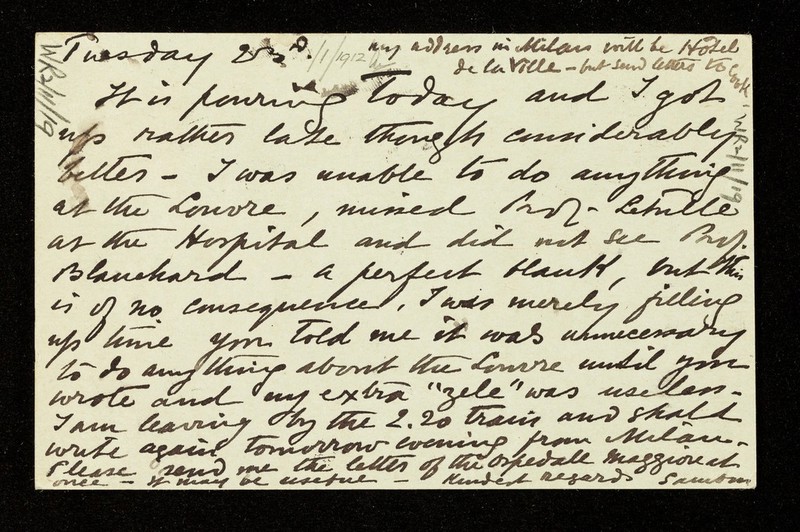 Tuesday 23rd. /1/1912 my address in Milan will be Hotel
de la Ville – but send letters to Cook –
It is pouring Today and I got
up rather late though considerably
better – I was unable to do anything
at the Louvre, missed Prof. Letulle
at the Hospital and did not see Prof.
Blanchard – a perfect blank, but this
is of no consequence, I was merely filling
up time you told me it was unnecessary
to do anything about the Louvre until you
wrote and my extra "zele" was useless –
I am leaving by the 2.20 train and shall
write again tomorrow evening from Milan –
Please send me the letter of the Ospedale Maggiore at
once – it may be useful – Kindest regards Sambon